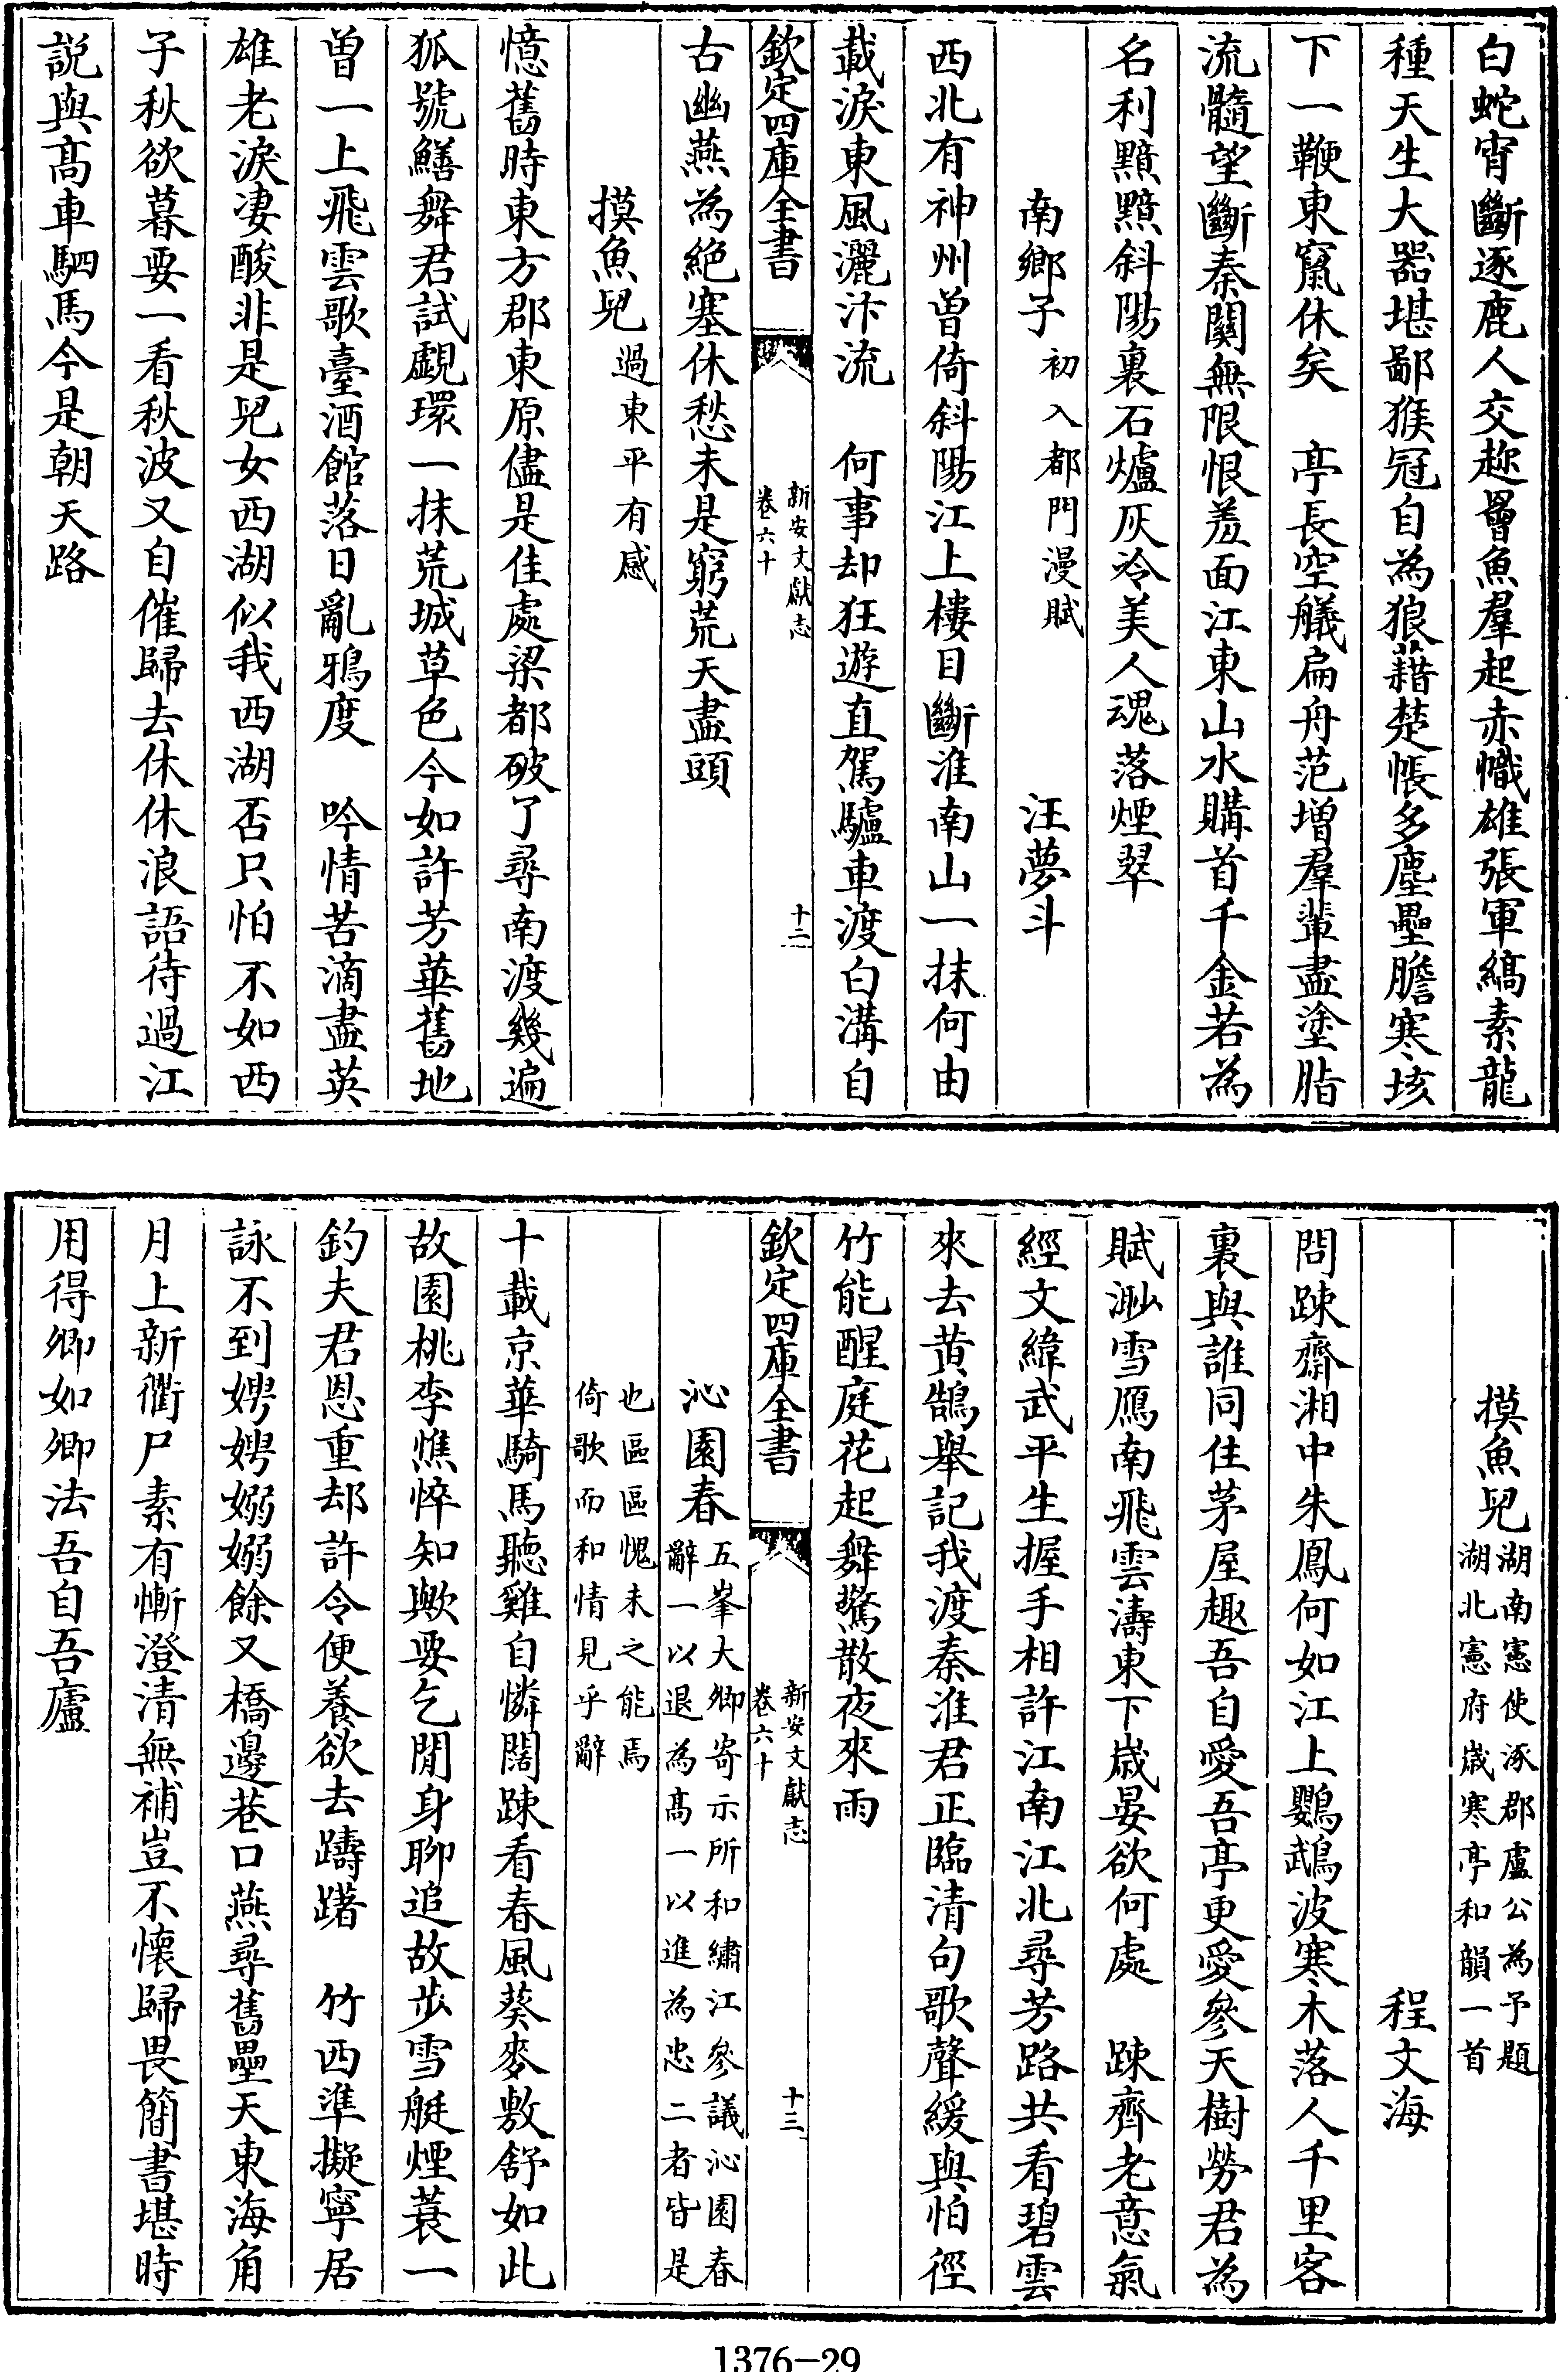 白蛇宵斷逐鹿人交趂罾魚羣起赤幟雄張軍縞素龍
種天生大器堪鄙猴冠自為狼藉楚帳多塵壘膽寒垓
下一鞭東竄休矣　亭長空艤扁舟范增羣輩盡塗脂
流髓望斷秦關無限恨羞面江東山水購首千金若為
名利黯黯斜陽裏石爐灰冷美人魂落煙翠
南鄉子初入都門漫賦　汪夢斗
西北有神州曾倚斜陽江上樓目斷淮南山一抹何由
載淚東風灑汴流　何事却狂遊直駕驢車渡白溝自
欽定四庫全書　新安文獻志　卷六十　十二
古幽燕為絶塞休愁未是窮荒天盡頭
摸魚兒過東平有感
憶舊時東方郡東原儘是佳處梁都破了尋南渡幾遍
狐號鱔舞君試覷環一抹荒城草色今如許芳華舊地
曾一上飛雲歌臺酒館落日亂鴉度　吟情苦滴盡英
雄老淚凄酸非是兒女西湖似我西湖否只怕不如西
子秋欲暮要一看秋波又自催歸去休休浪語待過江
説與髙車駟馬今是朝天路
摸魚兒湖南憲使涿郡盧公為予題
湖北憲府歲寒亭和韻一首
程文海
問踈齋湘中朱鳳何如江上鸚鵡波寒木落人千里客
裏與誰同住茅屋趣吾自愛吾亭更愛參天樹勞君為
賦渺雪鴈南飛雲濤東下歲晏欲何處　踈齊老意氣
經文緯武平生握手相許江南江北尋芳路共看碧雲
來去黄鵠舉記我渡秦淮君正臨清句歌聲緩與怕徑
竹能醒庭花起舞驚散夜來雨
欽定四庫全書　新安文獻志　卷六十　十三
沁園春五峯大卿寄示所和繡江參議沁園春
辭一以退為髙一以進為忠二者皆是
也區區愧未之能焉
倚歌而和情見乎辭
十載京華騎馬聽雞自憐闊踈看春風葵麥敷舒如此
故園桃李憔悴知歟要乞閒身聊追故步雪艇煙蓑一
釣夫君恩重却許令便養欲去躊躇　竹西準擬寧居
詠不到娉娉嫋嫋餘又橋邊巷口燕尋舊壘天東海角
月上新衢尸素有慚澄清無補豈不懷歸畏簡書堪時
用得卿如卿法吾自吾廬
1376-29